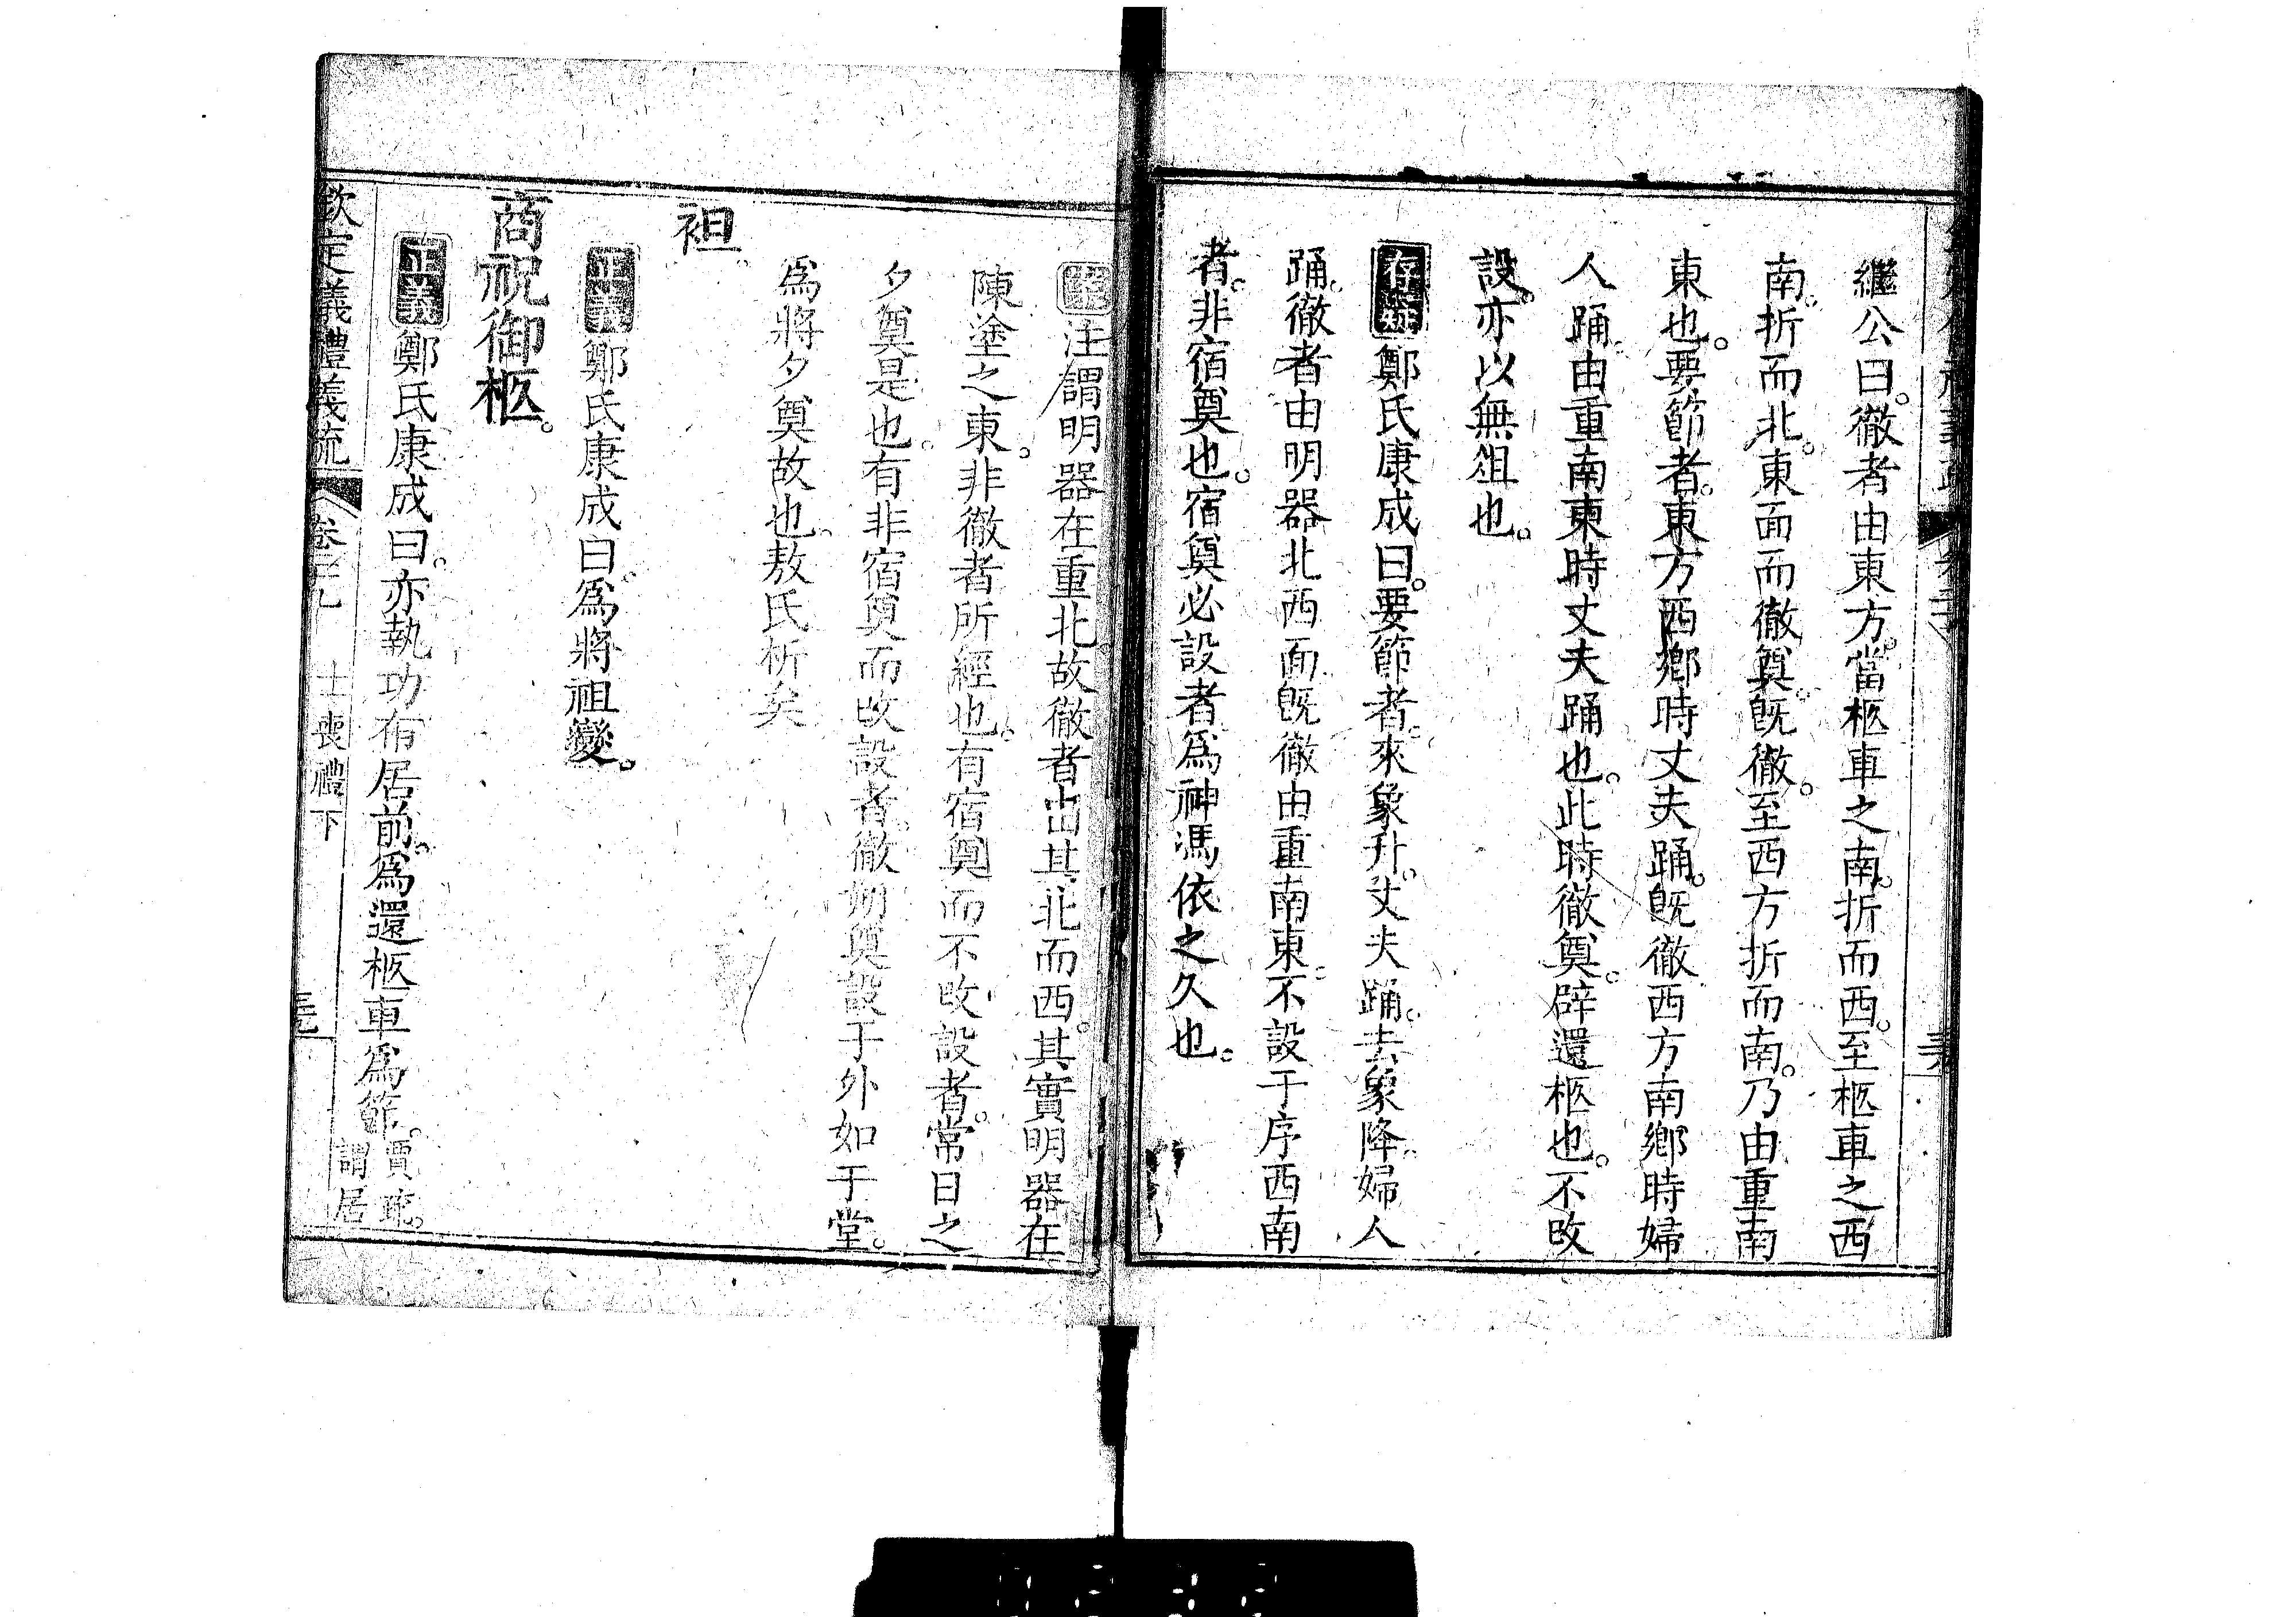 繼公曰。徹者由東方。當柩車之南。折而西。至柩車之西
南。折而北。東面而徹奠。旣徹。至西方折而南。乃由重南
東也。要節者。東方西鄉時丈夫踊。旣徹西方南鄉時婦
人踊。由重南東時丈夫踊也。此時徹奠。辟還柩也。不改
設。亦以無俎也。
存疑鄭氏康成曰。要節者。來象升。丈夫踊。去象降。婦人
踊。徹者由明器北西面旣徹由重南東。不設于序西南
者。非宿奠也。宿奠必設者爲神馮依之久也。
案注謂明器在重北。故徹者出其北而西。其實明器在
陳塗之東。非徹者所經也。有宿奠而不改設者。常日之
夕奠是也。有非宿奠而改設者。徹朔奠設于外如于堂。
爲將夕奠故也。敖氏析矣
袒。
正義鄭氏康成曰。爲將祖變。
商祝御柩。
正義鄭氏康成曰。亦執功布居前。爲還柩車爲節。賈疏。謂居
欽定儀禮義疏 卷三十 士喪禮下